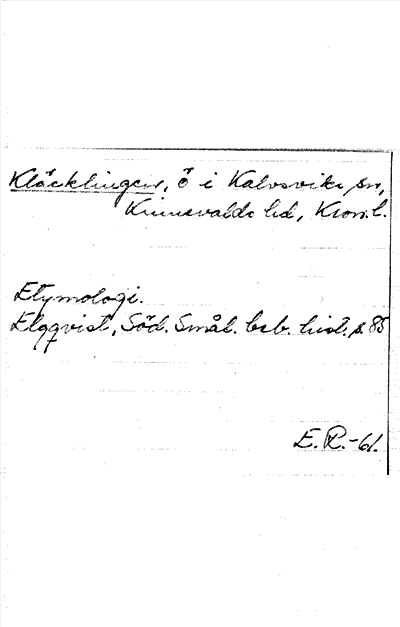 Kläcklingen, ö i Kalvsviks sn,
Kinnevalds hd, Kron. l.
Etymologi.
Elqvist, Söd. Smål. beb. hist. s. 85
E. R. -61.